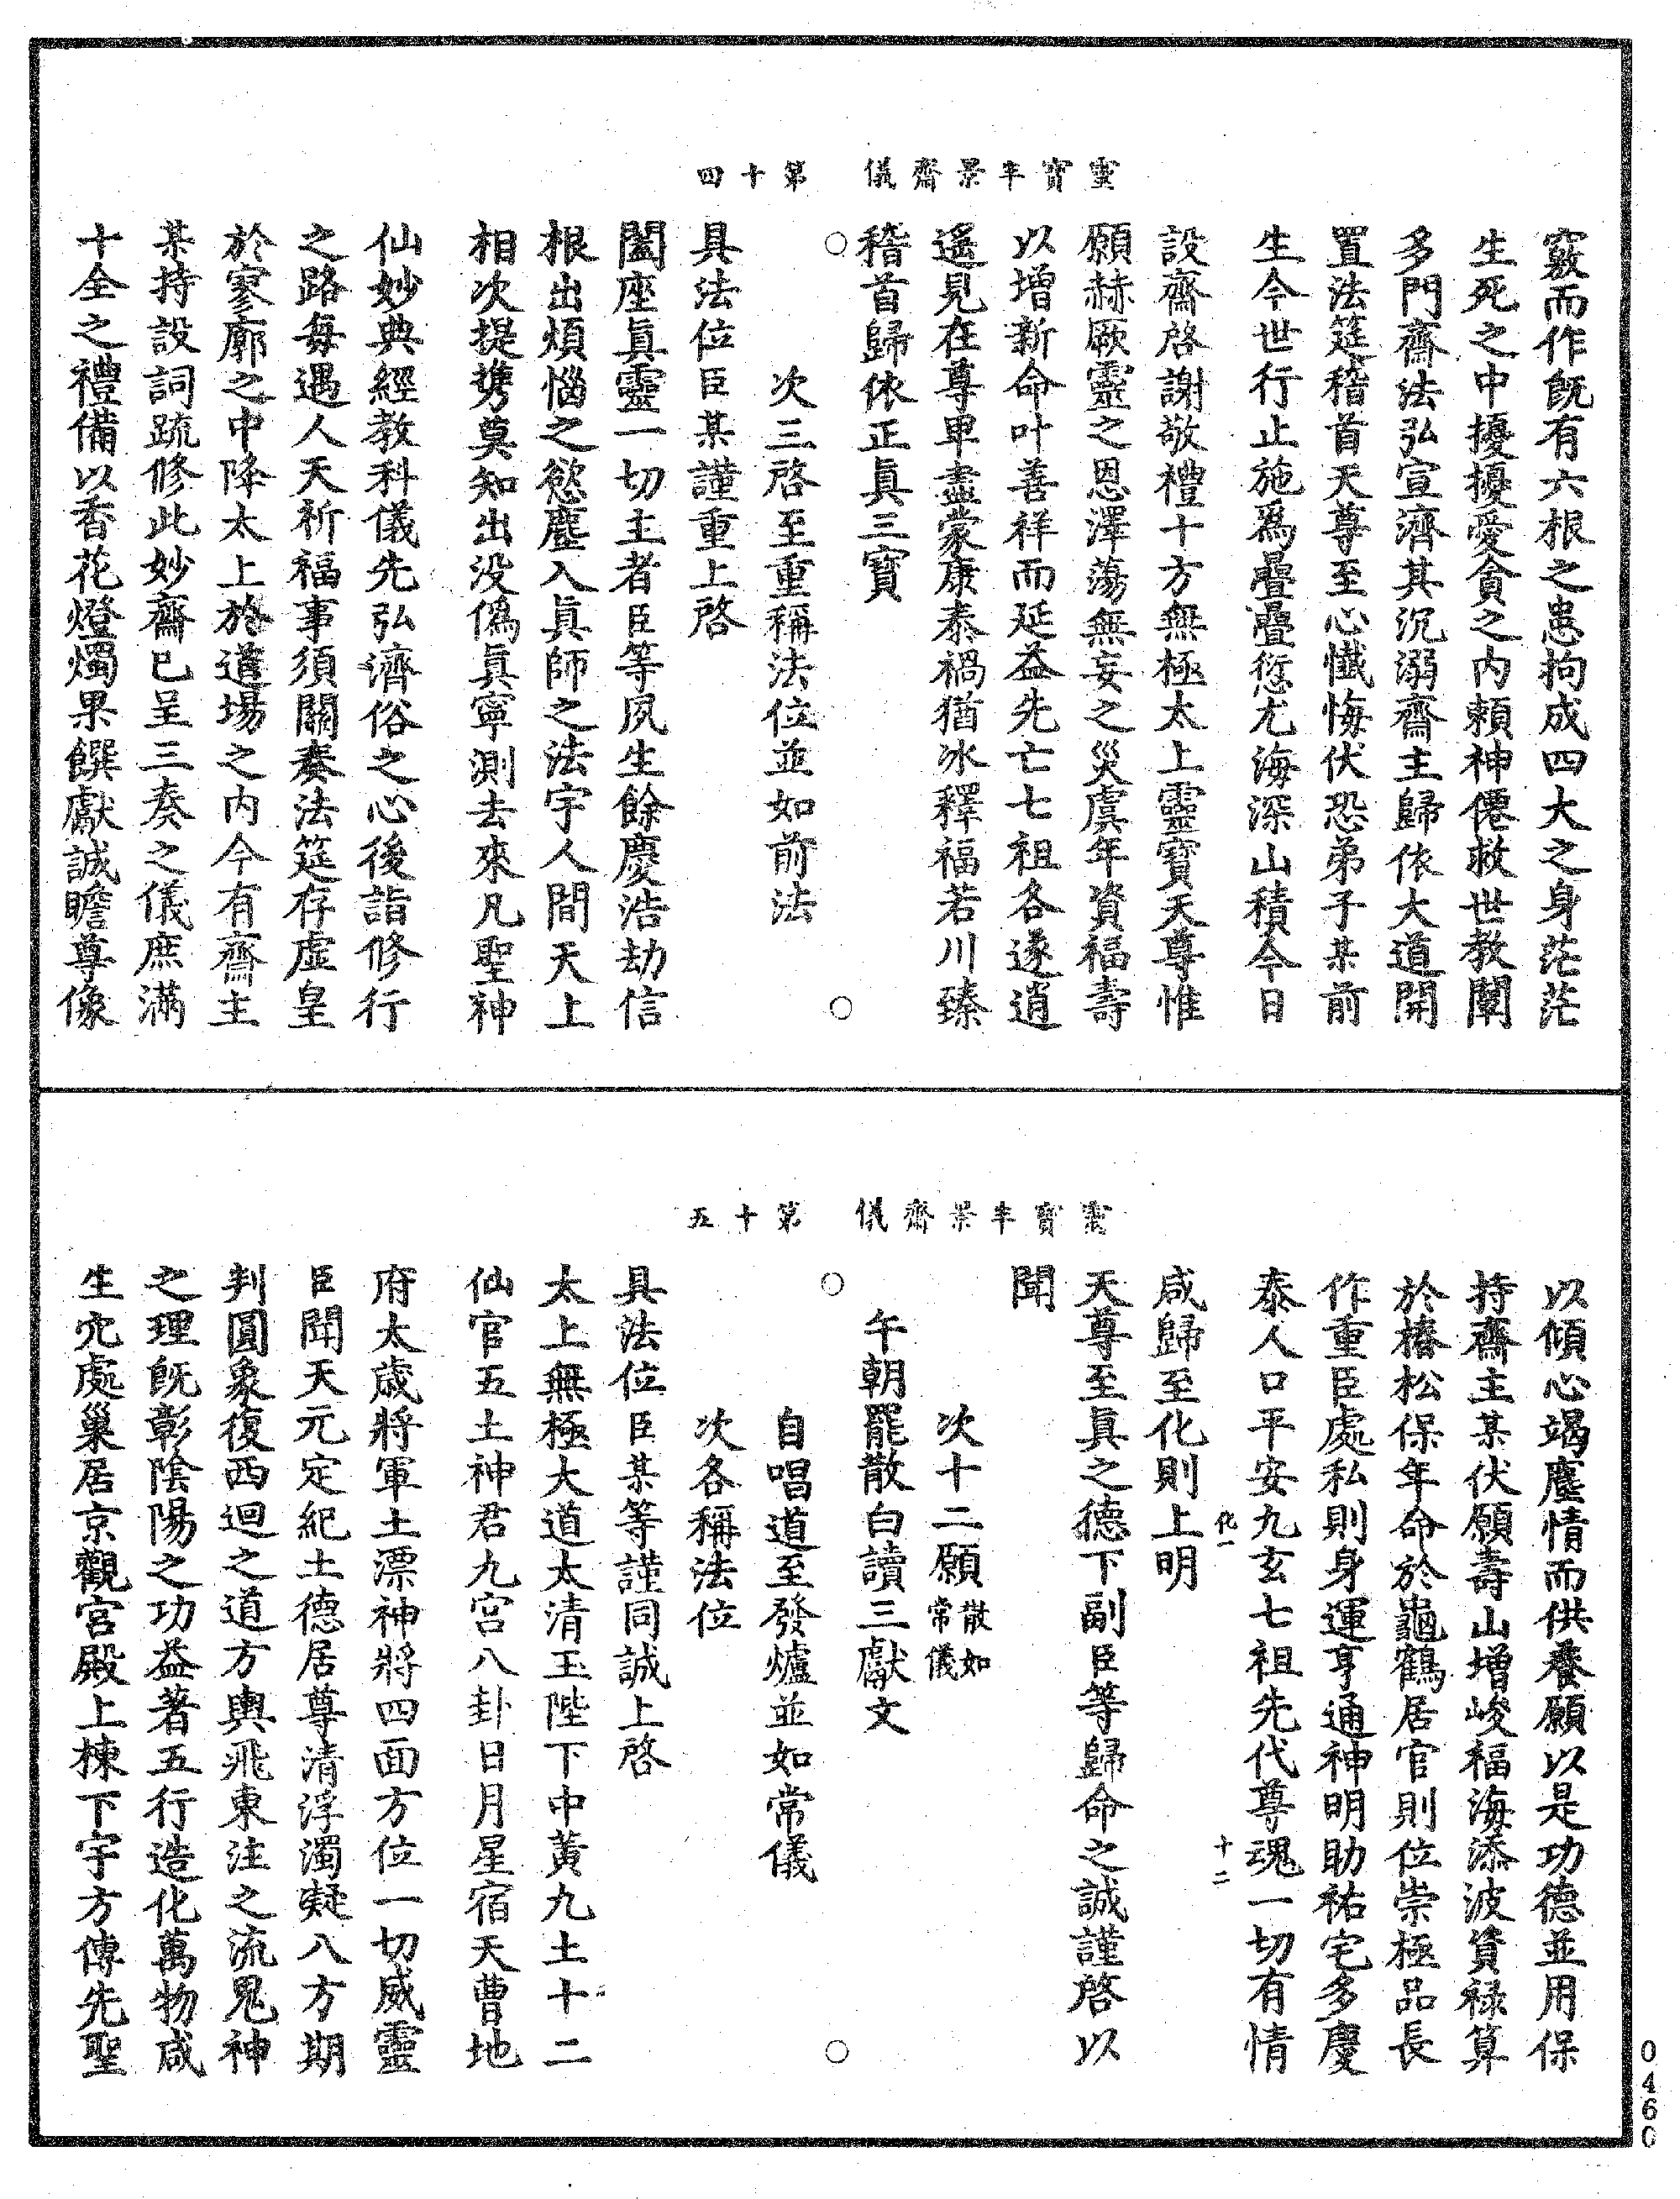 靈寶半景齋儀　第十四
竅而作旣有六根之患拘成四大之身茫茫
生死之中擾擾愛貪之内賴神僊救世教闡
多門齋法弘宣濟其沉溺齋主歸依大道開
置法筵稽首天尊至心懺悔伏恐弟子某前
生今世行止施爲疊疊愆尤海深山積今日
設齋啓謝敬禮十方無極太上靈寶天尊惟
願赫厥靈之恩澤蕩無妄之災虞年資福壽
以增新命叶善祥而延益先亡七祖各遂逍
遥見在尊卑盡蒙康泰禍猶冰釋福若川臻
稽首歸依正眞三寶
○　○
次三啓至重稱法位並如前法
具法位臣某謹重上啓
闔座眞靈一切主者臣等夙生餘慶浩劫信
根出煩惱之慾塵入眞師之法宇人間天上
相次提携莫知出没僞眞寧測去來凡聖神
仙妙典經教科儀先弘濟俗之心後詣修行
之路每遇人天祈福事須關奏法筵存虚皇
於寥廓之中降太上於道場之内今有齋主
某持設詞疏修此妙齋已呈三奏之儀庶滿
十全之禮備以香花燈燭果饌獻誠瞻尊像
靈寶半景齋儀　第十五
以傾心竭塵情而供養願以是功德並用保
持齋主某伏願壽山增峻福海添波資禄算
於椿松保年命於龜鶴居官則位崇極品長
作重臣處私則身運亨通神明助祐宅多慶
泰人口平安九玄七祖先代尊魂一切有情
化一　十二
咸歸至化則上明
天尊至眞之德下副臣等歸命之誠謹啓以
聞
次十二願散如常儀
午朝罷散白讀三獻文
○　○
自唱道至發爐並如常儀
次各稱法位
具法位臣某等謹同誠上啓
太上無極大道太清玉陛下中黃九土十二
仙官五土神君九宫八卦日月星宿天曹地
府太歲將軍土漂神將四面方位一切威靈
臣聞天元定紀土德居尊清浮濁凝八方期
判圓象復西迴之道方輿飛東注之流鬼神
之理旣彰陰陽之功益著五行造化萬物咸
生宂處巢居京觀宫殿上棟下宇方傳先聖
0460